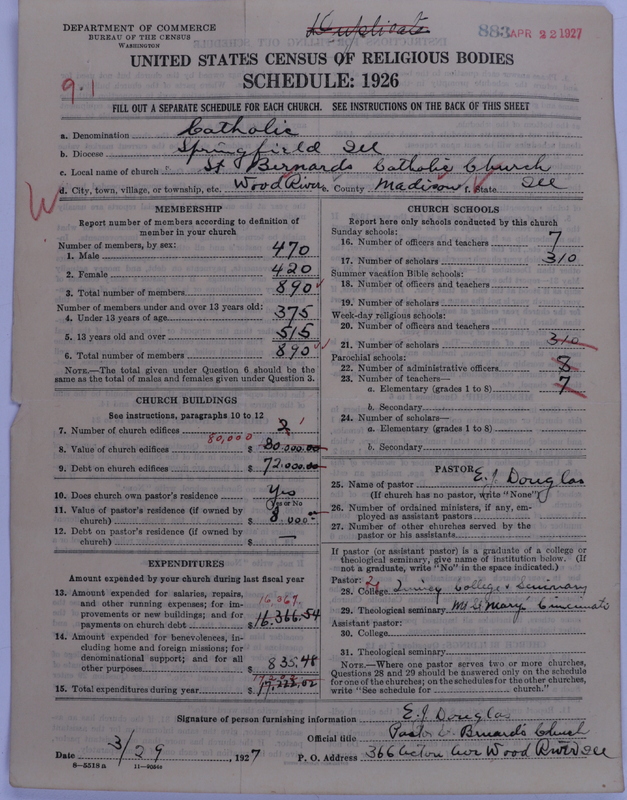 DEPARTMENT OF COMMERCE
BUREAU OF THE CENSUS
WASHINGTON
Duplicate
883 APR 22 1927
UNITED STATES CENSUS OF RELIGIOUS BODIES
SCHEDULE: 1926
9.1
FILL OUT A SEPARATE SCHEDULE FOR EACH CHURCH. SEE INSTRUCTIONS ON THE BACK OF THIS SHEET
a. Denomination Catholic
b. Diocese Springfield Ill
c. Local name of church St Bernards Catholic Church
d. City, town, village, or township, etc. Wood River e. County Madison f. State Ill
W
MEMBERSHIP
Report number of members according to definition of
member in your church
Number of members, by sex:
1. Male 470
2. Female 420
3. Total number of members 890
Number of members under and over 13 years old:
4. Under 13 years of age 375
5. 13 years old and over 515
6. Total number of members 890
NOTE.—The total given under Question 6 should be
the same as the total of males and females given under Question 3.
CHURCH BUILDINGS
See instructions, paragraphs 10 to 12
7. Number of church edifices 2 1
80,000
8. Value of church edifices $ 80.000.00
9. Debt on church edifices $ 72.000.00
10. Does church own pastor's residence Yes
Yes or No
11. Value of pastor's residence (if owned by
church) $ 8.000
12. Debt on pastor's residence (if owned by
church) $ —
EXPENDITURES
Amount expended by church during last fiscal year
13. Amount expended for salaries, repairs,
and other running expenses; for im-
provements or new buildings; and for
payments on church debt $ 16.366.54
14. Amount expended for benevolences, in-
cluding home and foreign missions; for
denominational support; and for all
other purposes $ 835.48
15. Total expenditures during year $ 17.222.02
CHURCH SCHOOLS
Report here only schools conducted by this church
Sunday schools:
16. Number of officers and teachers 7
17. Number of scholars 310
Summer vacation Bible schools:
18. Number of officers and teachers
19. Number of scholars
Week-day religious schools:
20. Number of officers and teachers
21. Number of scholars 310
Parochial schools:
22. Number of administrative officers 8
23. Number of teachers—
a. Elementary (grades 1 to 8) 7
b. Secondary
24. Number of scholars—
a. Elementary (grades 1 to 8)
b. Secondary
PASTOR
25. Name of pastor E. J. Douglas
(If church has no pastor, write "None")
26. Number of ordained ministers, if any, em-
ployed as assistant pastors
27. Number of other churches served by the
pastor or his assistants
If pastor (or assistant pastor) is a graduate of a college or
theological seminary, give name of institution below. (If
not a graduate, write "No" in the space indicated.)
Pastor:
28. College Quincy College & Seminary
29. Theological seminary Mt St Mary Cincinnati
Assistant pastor:
30. College
31. Theological seminary
NOTE.—Where one pastor serves two or more churches,
Questions 28 and 29 should be answered only on the schedule
for one of the churches; on the schedules for the other churches,
write "See schedule for church."
Signature of person furnishing information E. J. Douglas
Official title Pastor St Bernards Church
Date 3/29, 1927 P. O. Address 366 Acton Ave Wood River Ill
8—5518a 11—20546